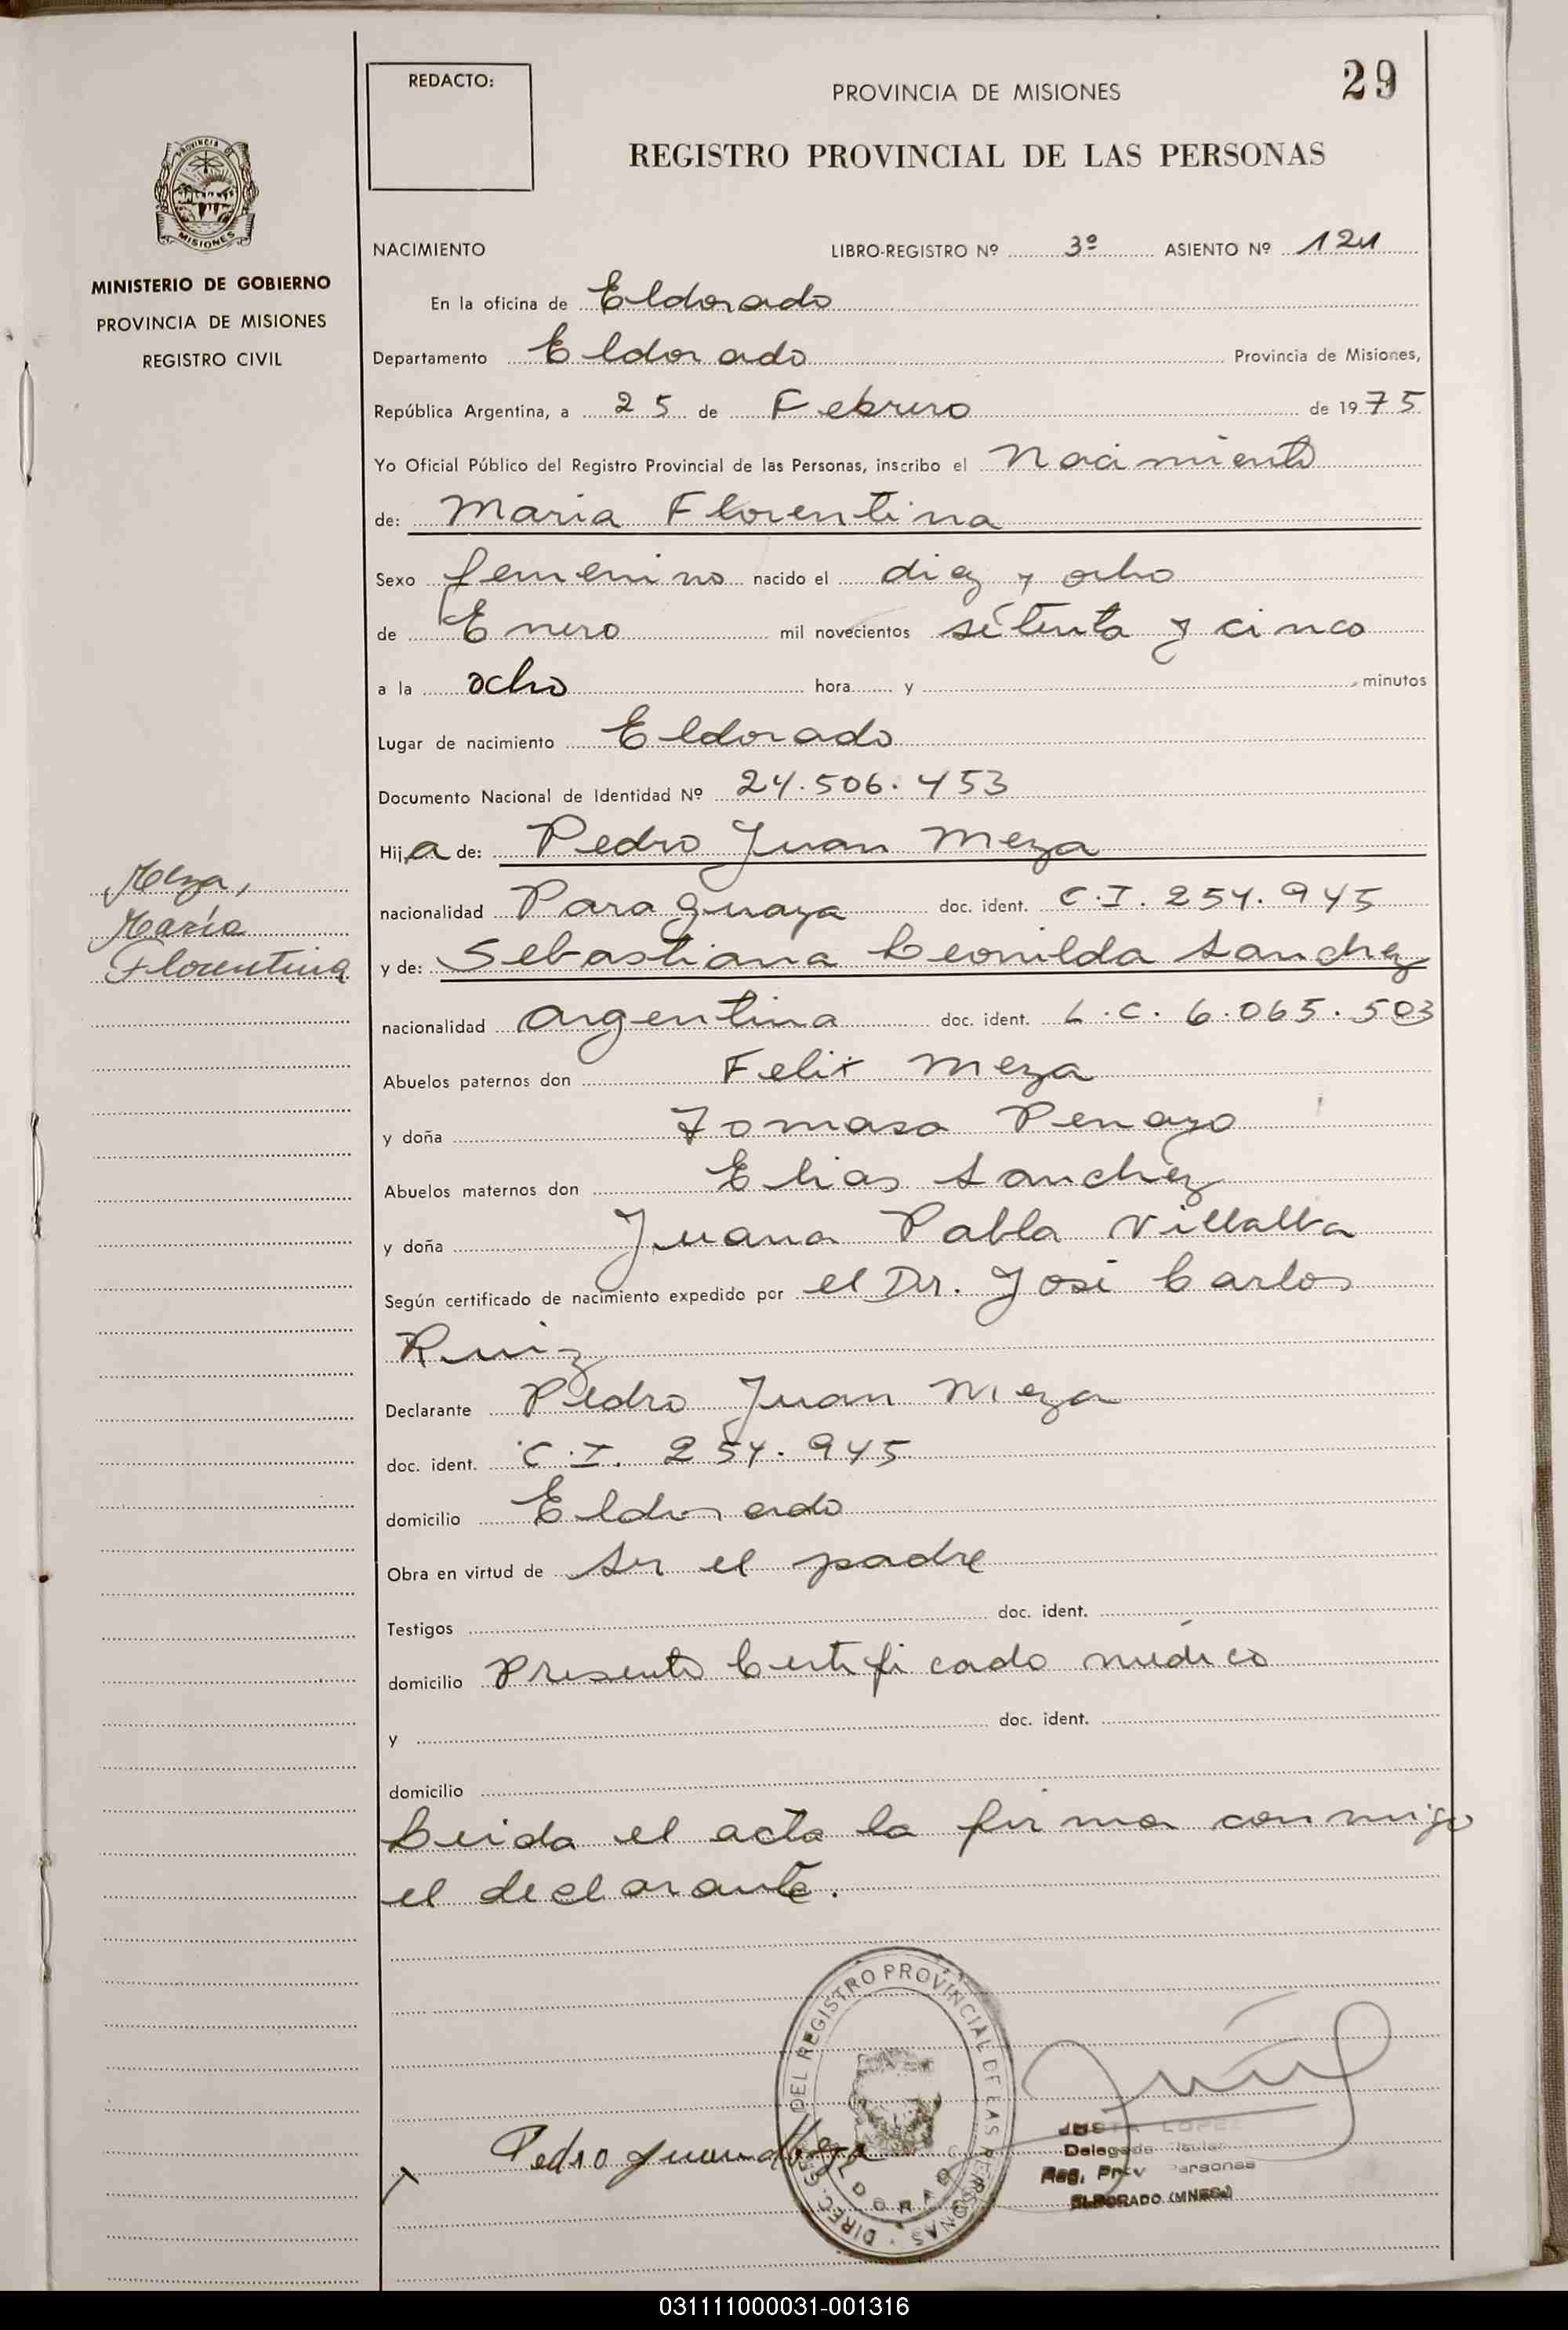 REDACTO:
PROVINCIA DE MISIONES
29
REGISTRO PROVINCIAL DE LAS PERSONAS
MISIONES
MINISTERIO DE GOBIERNO
PROVINCIA DE MISIONES
REGISTRO CIVIL
NACIMIENTO LIBRO-REGISTRO Nº 3º ASIENTO Nº 121
En la oficina de Eldorado
Departamento Eldorado Provincia de Misiones,
República Argentina, a 25 de Febrero de 1975
Yo Oficial Público del Registro Provincial de las Personas, inscribo el Nacimiento
de: Maria Florentina
Sexo femenino nacido el diez y ocho
de Enero mil novecientos setenta y cinco
a la ocho hora y minutos
Lugar de nacimiento Eldorado
Documento Nacional de Identidad Nº 24.506.453
Hija de: Pedro Juan Meza
nacionalidad Paraguaya doc. ident. C.I. 254.945
Meza,
María
Florentina
y de: Sebastiana Leonilda Sanchez
nacionalidad argentina doc. ident. L.C. 6.065.503
Abuelos paternos don Felix Meza
y doña Tomasa Penayo
Abuelos maternos don Elias Sanchez
y doña Juana Pabla Villalba
Según certificado de nacimiento expedido por el Dr. José Carlos
Ruiz
Declarante Pedro Juan Meza
doc. ident. C.I. 254.945
domicilio Eldorado
Obra en virtud de ser el padre
Testigos doc. ident.
domicilio Presento Certificado médico
y doc. ident.
domicilio
Leida el acta la firma conmigo
el declarante.
DIREC. GRAL. DEL REGISTRO PROVINCIAL DE LAS PERSONAS
ELDORADO
Pedro Juan Meza
JUSTA LOPEZ
Delegada Titular
Reg. Prov. Personas
ELDORADO (MNES.)
031111000031-001316